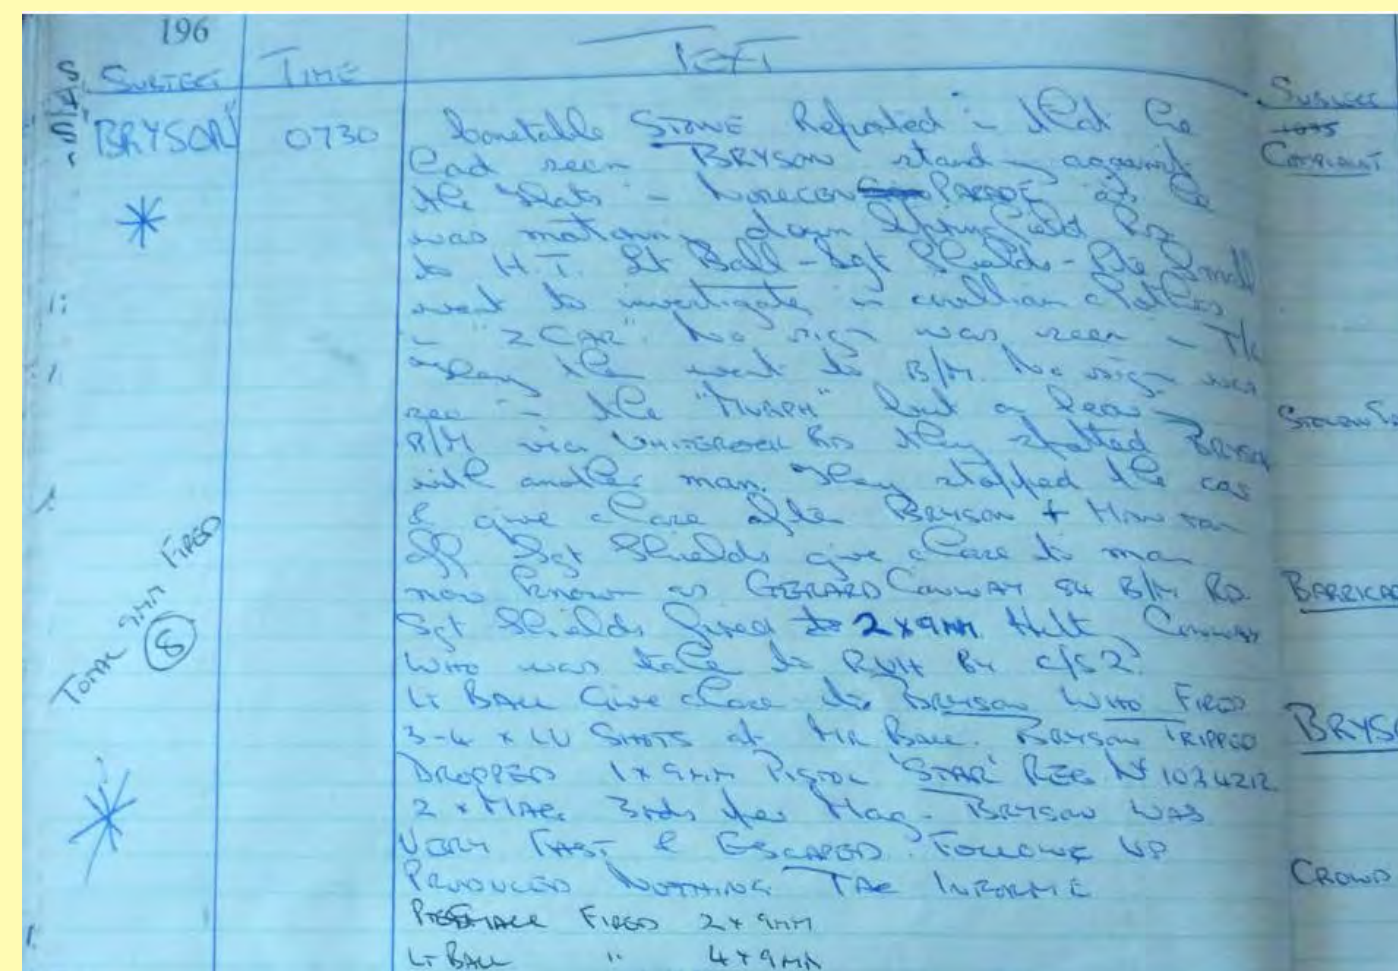 196
SUBJECT TIME TEXT
BRYSON 0730 Constable STOWE Reported in that he
had seen BRYSON standing against
the flats in NORECON PARADE as he
was down Springfield Rd
to H.T. Lt Ball - Sgt Shields - Pte Small
went to investigate in civilian clothes
in "Z CAR". No sign was seen in T/L
They then went to B/M. No sign was
seen in the "MURPH" but on leaving
B/M via WHITEROCK RD they spotted BRYSON
with another man. They stopped the car
& give chase after BRYSON + MAN ran
off Sgt Shields give chase to man
now known as GERARD CONWAY 84 B/M RD.
Sgt Shields fired 2x9MM Hitt CONWAY
WHO was taken to RVH BY C/S 2.
LT BALL Give chase to BRYSON WHO FIRED
3-4 x LV SHOTS at MR BALL. BRYSON TRIPPED
DROPPED 1x9MM PISTOL 'STAR' REG No 1034212
2 x MAG. 3rds per Mag. BRYSON WAS
VERY FAST & ESCAPED. FOLLOW UP
PRODUCED NOTHING TAC INFORME
FIRED 2x9MM
LT BALL " 4x9MM
TOTAL 9MM FIRED
8
SUBJECT
COMPLAINT
STOLEN
BARRICA
BRYS
CROWD